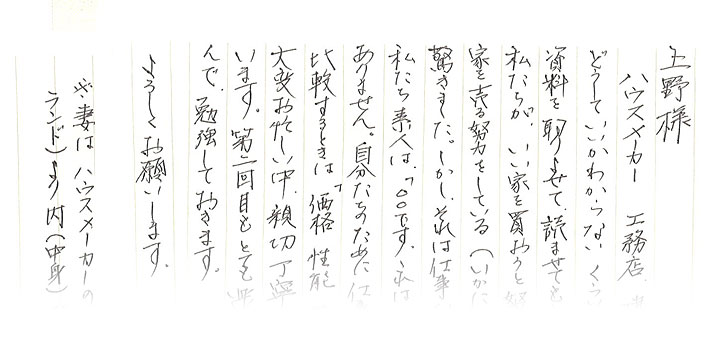 上野様
ハウスメーカー 工務店
どうしていいかわからないくらい
資料を取りよせて、読ませても
私たちが、いい家を買おうと努
家を売る努力をしている（いかに
驚きました。しかし、それは仕事
私たち素人は、「○○です、これは
ありません。自分たちのために仕
比較するときは「価格 性能
大変お忙しい中、親切丁寧
います。第二回目もとても楽
んで、勉強しておきます。
よろしくお願いします。
妻は ハウスメーカーの
ランド）より内（中身）